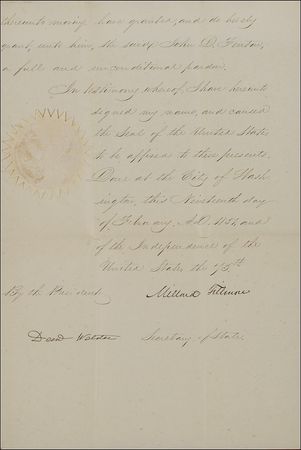 thereunto moving, have granted, and do hereby
grant, unto him, the said John D. Fenton,
a full and unconditional pardon.
In testimony whereof I have hereunto
signed my name, and caused
the Seal of the United States
to be affixed to these presents.
Done at the City of Wash
ington, this Nineteenth day
of February, A.D. 1851, and
of the Independence of the
United States the 75th
By the President
Millard Fillmore
Danl Webster Secretary of State.